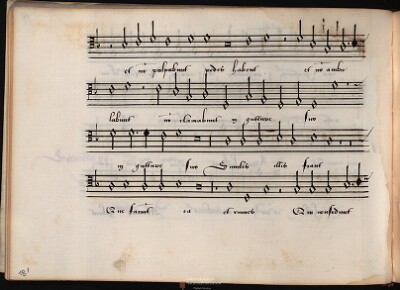 et nō palpabunt pedes habent et nō ambu
labunt nō clamabunt in gutture suo
in gutture suo Similes illis fiant
Qui faciūt ea et omnes Qui confidunt